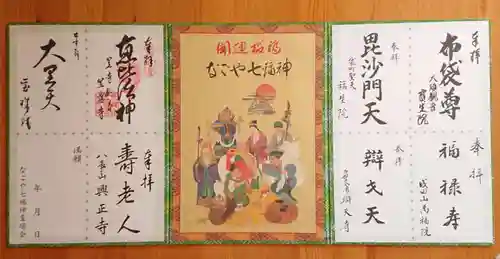 奉拝
布袋尊
大須観音
寳生院
奉拝
福禄寿
成田山萬福院
奉拝
毘沙門天
福生院
奉拝
辯才天
辯天寺
開運祈福
神福七やごな
奉拝
恵比須神
笠覆寺
奉拝
寿老人
八事山
興正寺
大黒天
宝珠院
満願
年 月 日
なごや七福神霊場会